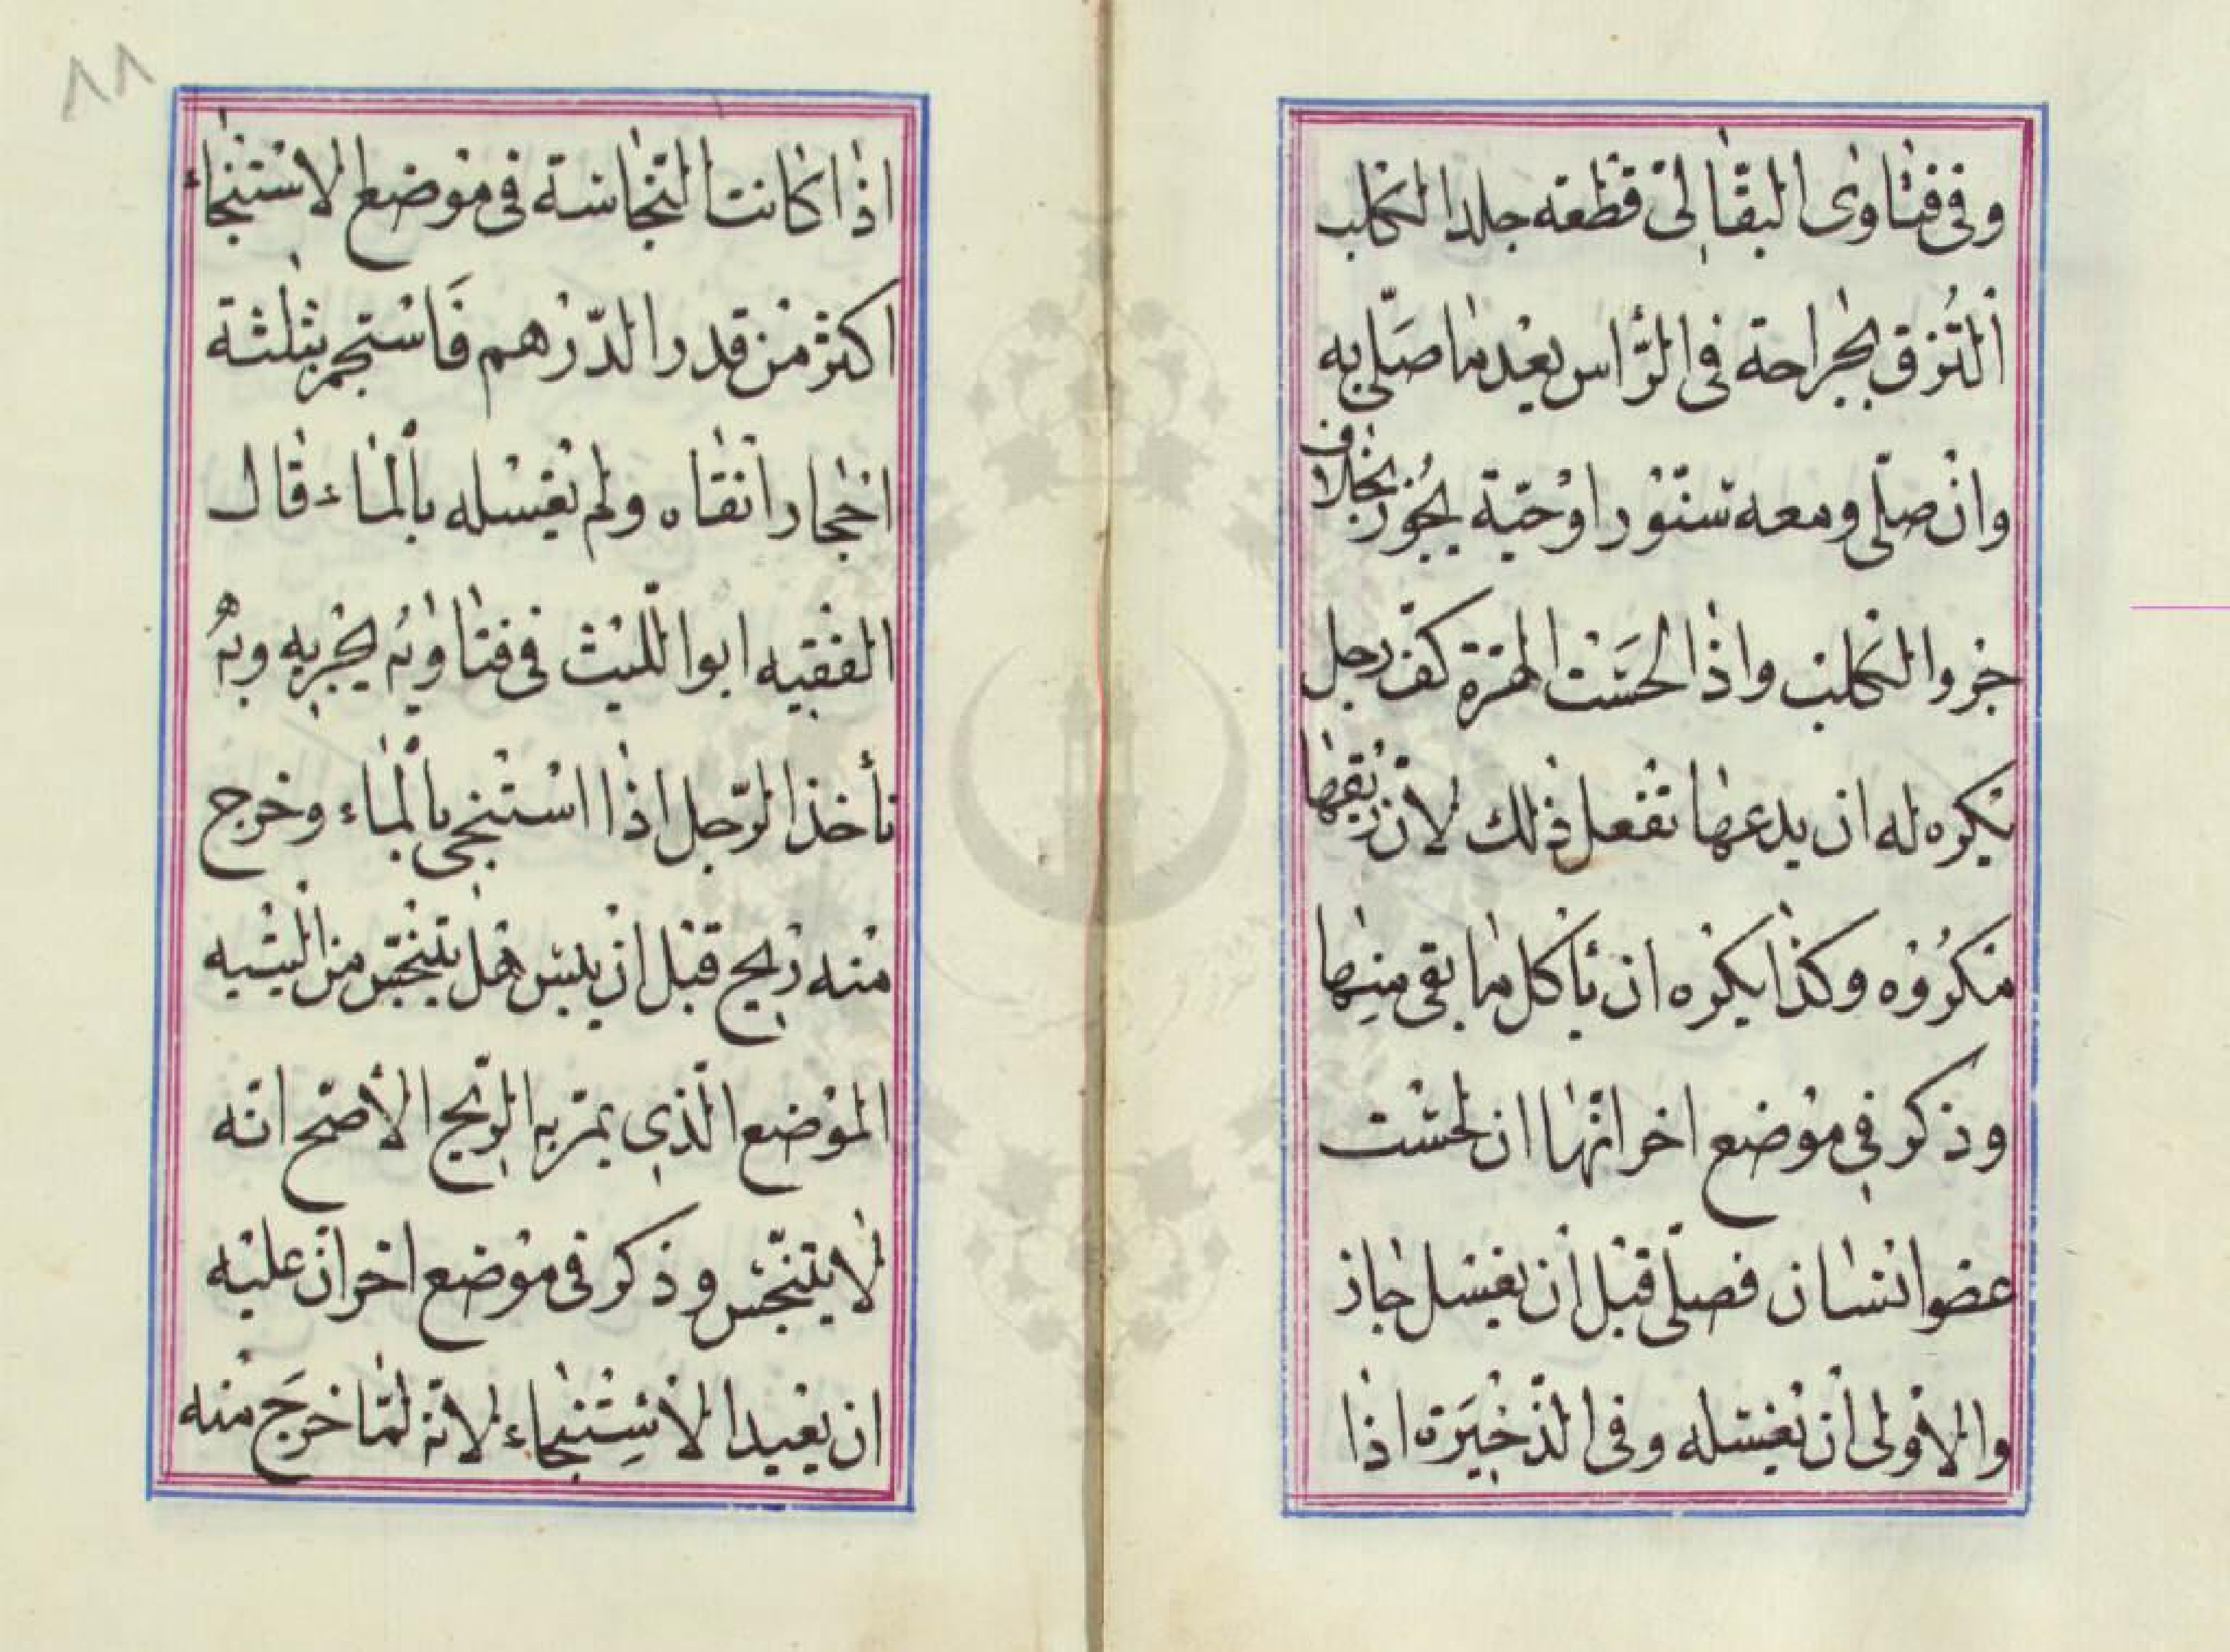 وفى فتاوى البقالى قطعة جلد الكلب
التزق بجراحة فى الرأس يعيد ما صلى به
وان صلى ومعه سنور او حية يجوز بخلاف
جرو الكلب واذا لحست الهرة كف رجل
يكره له ان يدعها تفعل ذلك لان ريقها
مكروه وكذا يكره ان يأكل ما بقى منها
وذكر فى موضع اخر انها ان لحست
عضو انسان فصلى قبل ان يغسل جاز
والاولى ان يغسله وفى الذخيرة اذا
٨٨
اذا كانت النجاسة فى موضع الاستنجاء
اكثر من قدر الدرهم فاستجمر بثلثة
احجار انقاه ولم يغسله بالماء قال
الفقيه ابوا الليث فى فتاويه يجزيه وبه
نأخذ الرجل اذا استنجى بالماء وخرج
منه ريح قبل ان يبس هل يتنجس من اليتيه
الموضع الذى يمر به الريح الأصح انه
لا يتنجس وذكر فى موضع اخر ان عليه
ان يعيد الاستنجاء لانه لما خرج منه